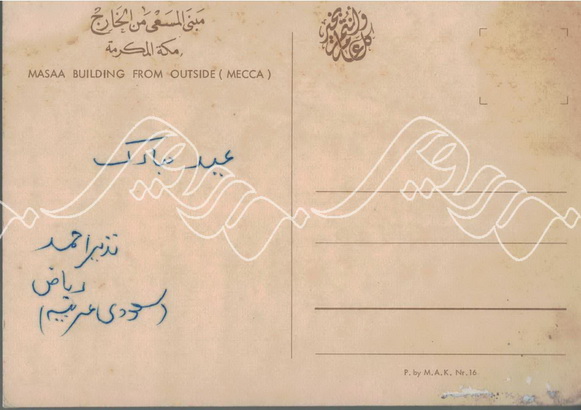 مبنى المسعى من الخارج
مكة المكرمة
MASAA BUILDING FROM OUTSIDE ( MECCA )
وأنتم بخير
كل عام
عید مبارک
نذیر احمد
ریاض
(سعودی عربیہ)
P. by M.A.K, Nr.16